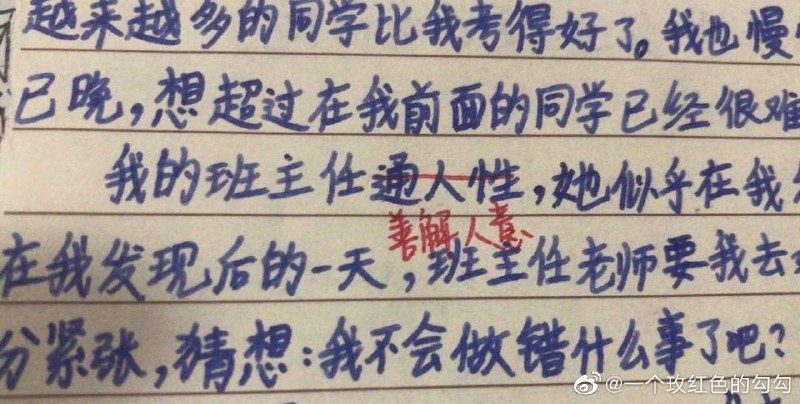 越来越多的同学比我考得好了。我也慢
已晚，想超过在我前面的同学已经很难
我的班主任通人性，她似乎在我
善解人意
在我发现后的一天，班主任老师要我去
分紧张，猜想：我不会做错什么事了吧？
@一个玫红色的勾勾